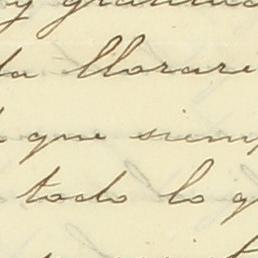 y gratitud
la llorare
que siemp
todo lo q